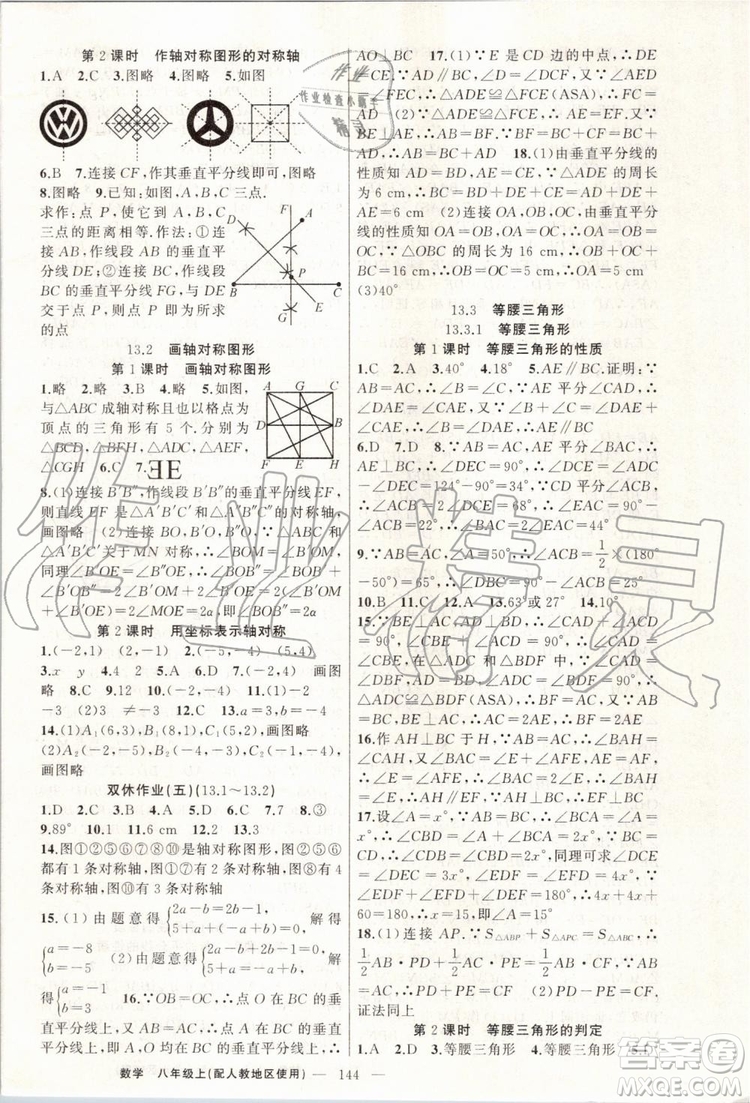 第 2 课时　作轴对称图形的对称轴
1.A　2.C　3.图略　4.图略　5.如图
6.B　7.连接 CF，作其垂直平分线即可，图略
8.图略　9.已知：如图，A，B，C 三点.
求作：点 P，使它到 A，B，C
三点的距离相等.作法：①
连接 AB，作线段 AB 的垂直
平分线 DE；②连接 BC，作线
段 BC 的垂直平分线 FG，与 DE
交于点 P，则点 P 即为所求
的点
D A F P B C E G
13.2　画轴对称图形
第 1 课时　画轴对称图形
1.略　2.略　3.B　4.B　5.如图，
与△ABC 成轴对称且也以格点为
顶点的三角形有 5 个，分别为
△BCD，△BFH，△ADC，△AEF，
△CGH　6.C　7.
A G C D B F E H
8.(1)连接 B′B″，作线段 B′B″的垂直平分线 EF，
则直线 EF 是△A′B′C′和△A″B″C″的对称轴，
画图略　(2)连接 BO，B′O，B″O，∵△ABC 和
△A′B′C′关于 MN 对称，∴∠BOM=∠B′OM，
同理∠B′OE=∠B″OE，∴∠BOB″=∠BOM+
∠B′OM+∠B′OE+∠B″OE=2(∠B′OM+
∠B′OE)=2α，即∠BOB″=2α
第 2 课时　用坐标表示轴对称
1.(-2,1)　(2,-1)　2.(-5,-4)　(5,4)
3.x　y　4.4　2　5.A　6.D　7.(-2,4)　画图
略　8.C　9.B　10.A　11.(1)(-2,-3)　-2
-3　(2)3　-2　12.C　13.a=-4
14.(1)A₁(6,3)，B₁(8,1)，C₁(5,1)，画图略
(2)A₂(-2,-2)，B₂(-4,-4)，C₂(-1,-4)，
画图略
双休作业(五)(13.1～13.2)
1.D　2.C　3.C　4.D　5.C　6.B　7.D　8.③
9.89°　10.1　11.6 cm　12.2　13.3
14.图①②③④⑥⑧⑩是轴对称图形，图①③④⑥⑧
都有 1 条对称轴，图⑩有 2 条对称轴，图②有
4 条对称轴
15.(1)由题意得{2a-b=2b-1, 5+a+(-a+b)=0. 解得
{a=-8 b=-5　(2)由题意得{2a-b+2b-1=0, 5+a=-a+b, 解
得{a=-1 b=3　16.∵OB=OC，∴点 O 在 BC 的垂
直平分线上，∵DB=DC，∴点 D 在 BC 的垂直
平分线上，∴OD 是 BC 的垂直平分线，即
AO⊥BC　17.(1)∵E 是 CD 边的中点，∴DE
=CE，∵AD∥BC，∴∠D=∠FCE，又∵∠AED
=∠FEC，∴△ADE≌△FCE(ASA)，∴FC=
AD　(2)∵△ADE≌△FCE，∴AE=EF.又∵
BE⊥AE，∴AB=BF.∵BF=BC+FC，∴AB=
BC+FC=BC+AD　18.(1)由垂直平分线的
性质知 AD=BD，AE=CE，∵△ADE 的周长
为 6 cm，∴BC=BD+DE+EC=AD+DE+
AE=6 cm　(2)连接 OA，OB，OC，由垂直平分
线的性质知 OA=OB，OA=OC，∴OA=OB=
OC.∵△OBC 的周长为 16 cm，∴OB+OC+
BC=16 cm，∴OB+OC=10 cm，∴OA=5 cm
(3)40°
13.3　等腰三角形
13.3.1　等腰三角形
第 1 课时　等腰三角形的性质
1.C　2.A　3.40°　4.18°　5.AE∥BC.证明：∵
AB=AC，∴∠B=∠C.∵AE 平分∠CAD，∴
∠DAE=∠CAE，又∵∠CAD=∠B+∠C，∴
∠DAE+∠CAE=∠B+∠C，∴∠DAE=∠B
6.D　7.D　8.∵AB=AC，AE 平分∠BAC，∴
AE⊥BC，∴∠DEC=90°，∴∠ACD=∠ADC
-∠DEC=124°-90°=34°，∵CD 平分∠ACE，
∴∠ACB=2∠DCE=68°，∵AB=AC，∴∠B
=∠ACB=68°，∴∠BAC=180°-2∠B=44°
9.∵AB=AC，∠A=50°，∴∠ACB=1/2×(180°
-50°)=65°
10.B　11.C　12.A　13.63°或 27°　14.10°
15.∵BE⊥AC，∴∠BEC=90°，∴∠C+∠CBE
=90°，∵∠ACB=45°，
在△CAD 和△BDF 中，∵∠CAD=
∴△CAD≌△BDF(ASA)，∴BF=AC.又∵AB
=BC，BE⊥AC，∴AC=2AE，∴BF=2AE
16.作 AH⊥BC 于 H，∵AB=AC，∴∠BAH=
∠CAH，又∵∠BAC=∠D+∠AED，∠D=
∠AED，∴∠BAC=2∠D，∴∠BAH=∠D，∴
AH∥DE，又∵AH⊥BC，∴DE⊥BC
17.设∠A=x°，∵AB=BC=CD，∴∠ACB=∠A
=x°，∴∠CBD=∠A+∠BCA=2x°，∵BC=
CD，∴∠CDB=∠CBD=2x°，同理可求得：
∠EDF=∠EFD=4x°，∵∠DEF=60°，∴
∠EDF+∠EFD+∠DEF=180°，∴4x+4x+
60=180，∴x=15，即∠A=15°
18.(1)连接 AP，∵S△ABP+S△APC=S△ABC，∴
1/2AB·PD+1/2AC·PE=1/2AC·BF，又∵AB
=AC，∴BF=PD+PE　(2)PD-PE=BF.
证法同上
第 2 课时　等腰三角形的判定
1.A　2.A　3.等腰三角形　4.等腰三角形　5.D
数学　八年级上(配人教地区使用)　—　144　—
作业
作业检查小助手
精灵
作业精灵
答案圈